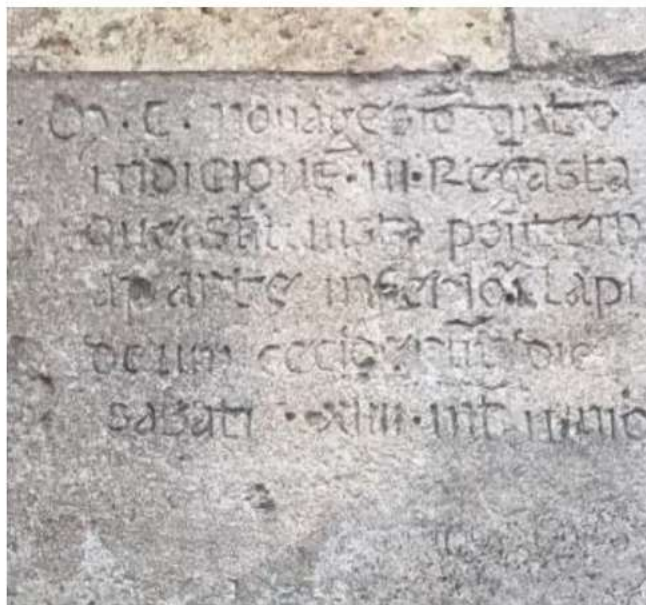 · M · C · nonagesio qinto
indicione · III · Regasta
que st iusta pontem
a parte inferior lapi
deum cecider die
sabati · XIIII · int